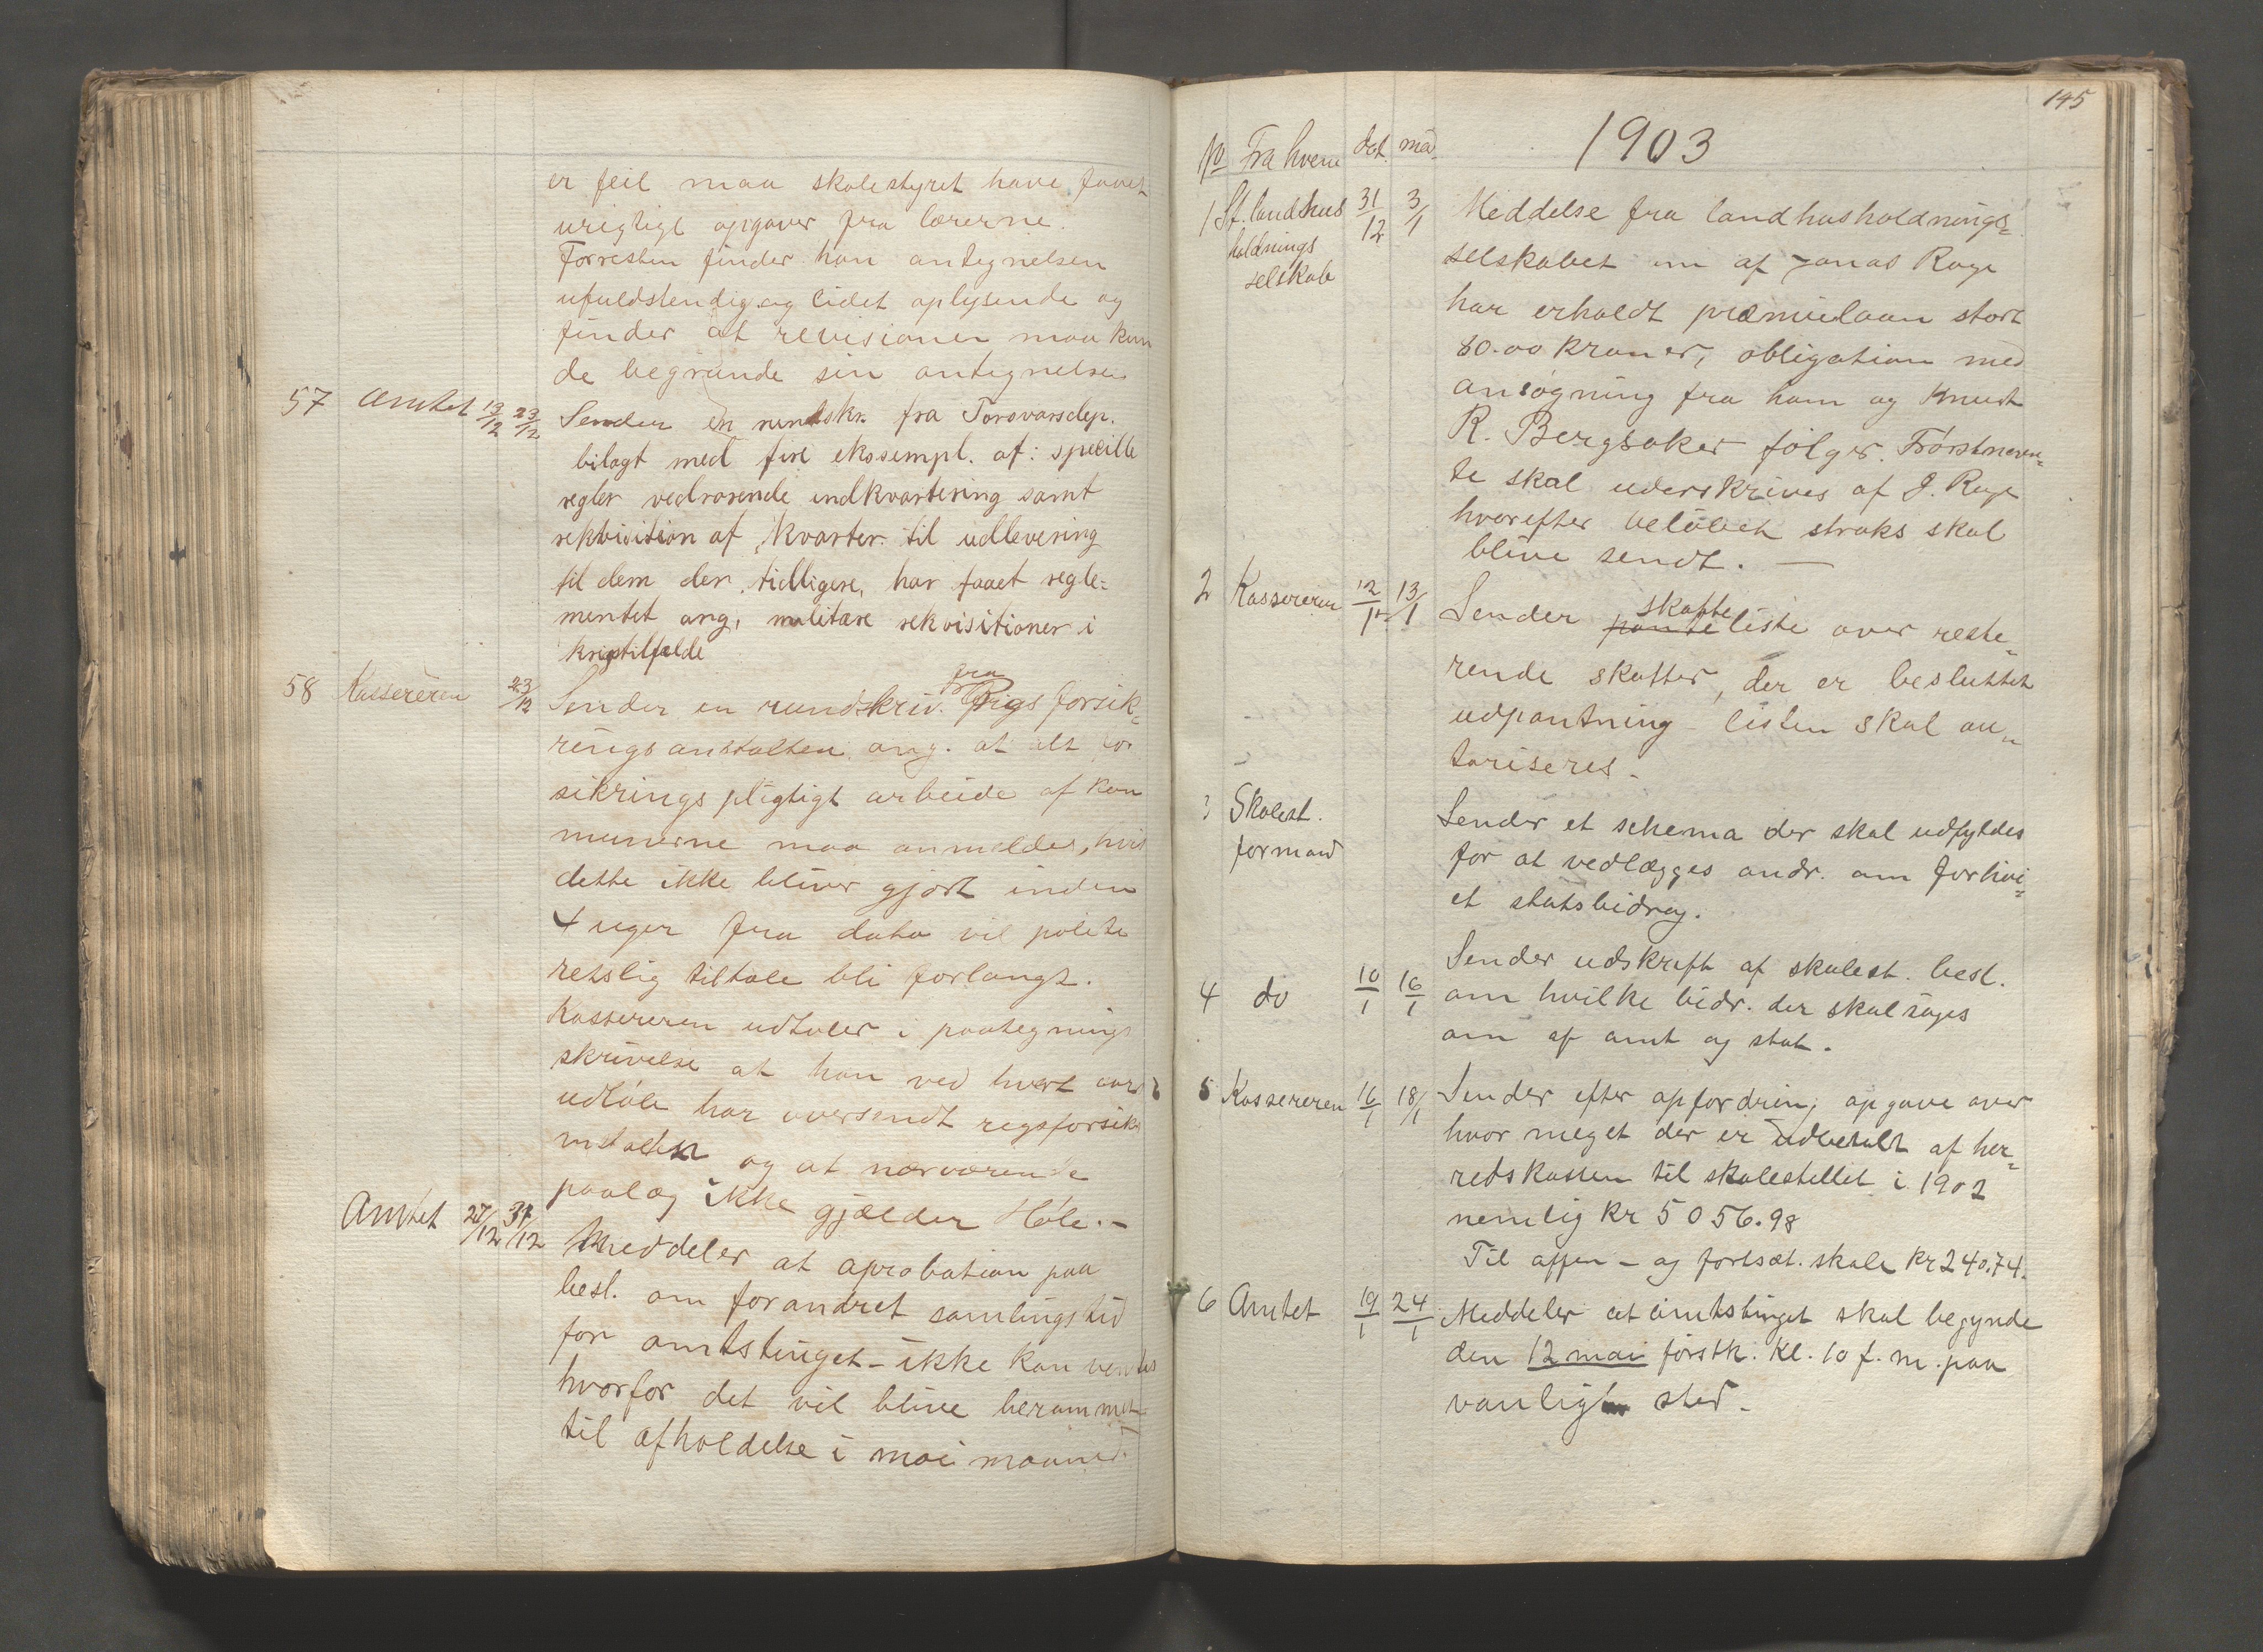 er feil maa skolestyret have faaet
urigtige opgaver fra lærerne.
Forresten finder han antegnelsen
ufuldstendig og lidet oplysende og
finder at revisionen maa kun
de begrunde sin antegnelse
57 Amtet 13/12 23/12 Sender en rundskr. fra Forsvarsdep.
bilagt med fire eksempl. af: specille
regler vedrørende indkvartering samt
rekvisition af kvarter til udlevering
til dem der tidligere, har faaet regle=
mentet ang, militære rekvisitioner i
krigstilfælde
58 Kassereren 23/12 Sender en rundskriv. fra Rigsforsik=
ringsanstalten ang. at alt for
sikringspligtigt arbeide af kom
munerne maa anmeldes, hvis
dette ikke bliver gjort inden
4 uger fra dato vil politi
retslig tiltale bli forlangt.
Kassereren udtaler i paategnings
skrivelse at han ved hvert aars
udløb har oversendt regsforsik
og at nærværende
paalæg ikke gjælder Høle. -
Amtet 27/12 31/12 Meddeler at aprobation paa
besl. om forandret samlingstid
for amtstinget - ikke kan ventes
hvorfor det vil blive berammet
til afholdelse i mai maaned.
145
1903
No Fra hvem dat. mod.
1 St. landhus 31/12 3/1 Meddelse fra landhusholdnings=
holdnings
selskab
selskabet om af Jonas Rage
har erholdt præmielaan stort
80.00 kroner, obligation med
ansøgning fra ham og Knut
R. Bergsaker følger.
te skal uderskrives af J. Rage
hvorefter beløbet straks skal
blive sendt. —
2 Kassereren 12/1 13/1 Sender pante skatte liste over reste=
rende skatter, der er besluttet
udpantning - listen skal au=
toriseres.
3 Skolest. Sender et schema der skal udfyldes
formand for at vedlægges andr. om forhøi=
et statsbidrag.
Sender udskrift af skolest. besl.
4 do 10/1 16/1 om hvilke bidr. der skal søges
om af amt og stat.
5 Kassereren 16/1 18/1 Sender efter opfordring opgave over
hvor meget der er udbetalt af her=
redskassen til skolestellet i 1902
nemlig kr 5056.98
Til aften - og fortsæt. skole kr 240.74.
6 Amtet 19/1 24/1 Meddeler at amtstinget skal begynde
den 12 mai førstk. kl. 10 f. m. paa
vanligt sted.